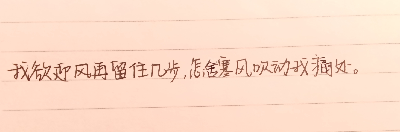 我欲迎风再留住几步,怎舍寒风吹动我痛处。